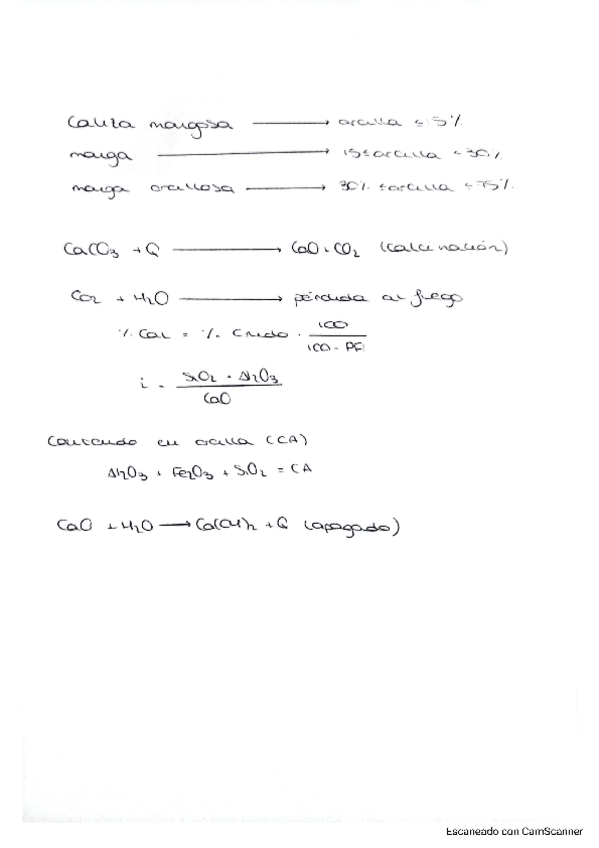 Caliza margosa ⟶ arcilla ≤ 15%
marga ⟶ 15 ≤ arcilla < 30%
marga arcillosa ⟶ 30% ≤ arcilla < 75%
CaCO₃ + Q ⟶ CaO + CO₂ (calcinación)
CO₂ + H₂O ⟶ pérdida al fuego
% Cal = % Crudo · 100 / 100 - PF
i = SiO₂ + Al₂O₃ / CaO
Contenido en arcilla (CA)
Al₂O₃ + Fe₂O₃ + SiO₂ = CA
CaO + H₂O ⟶ Ca(OH)₂ + Q (apagado)
Escaneado con CamScanner